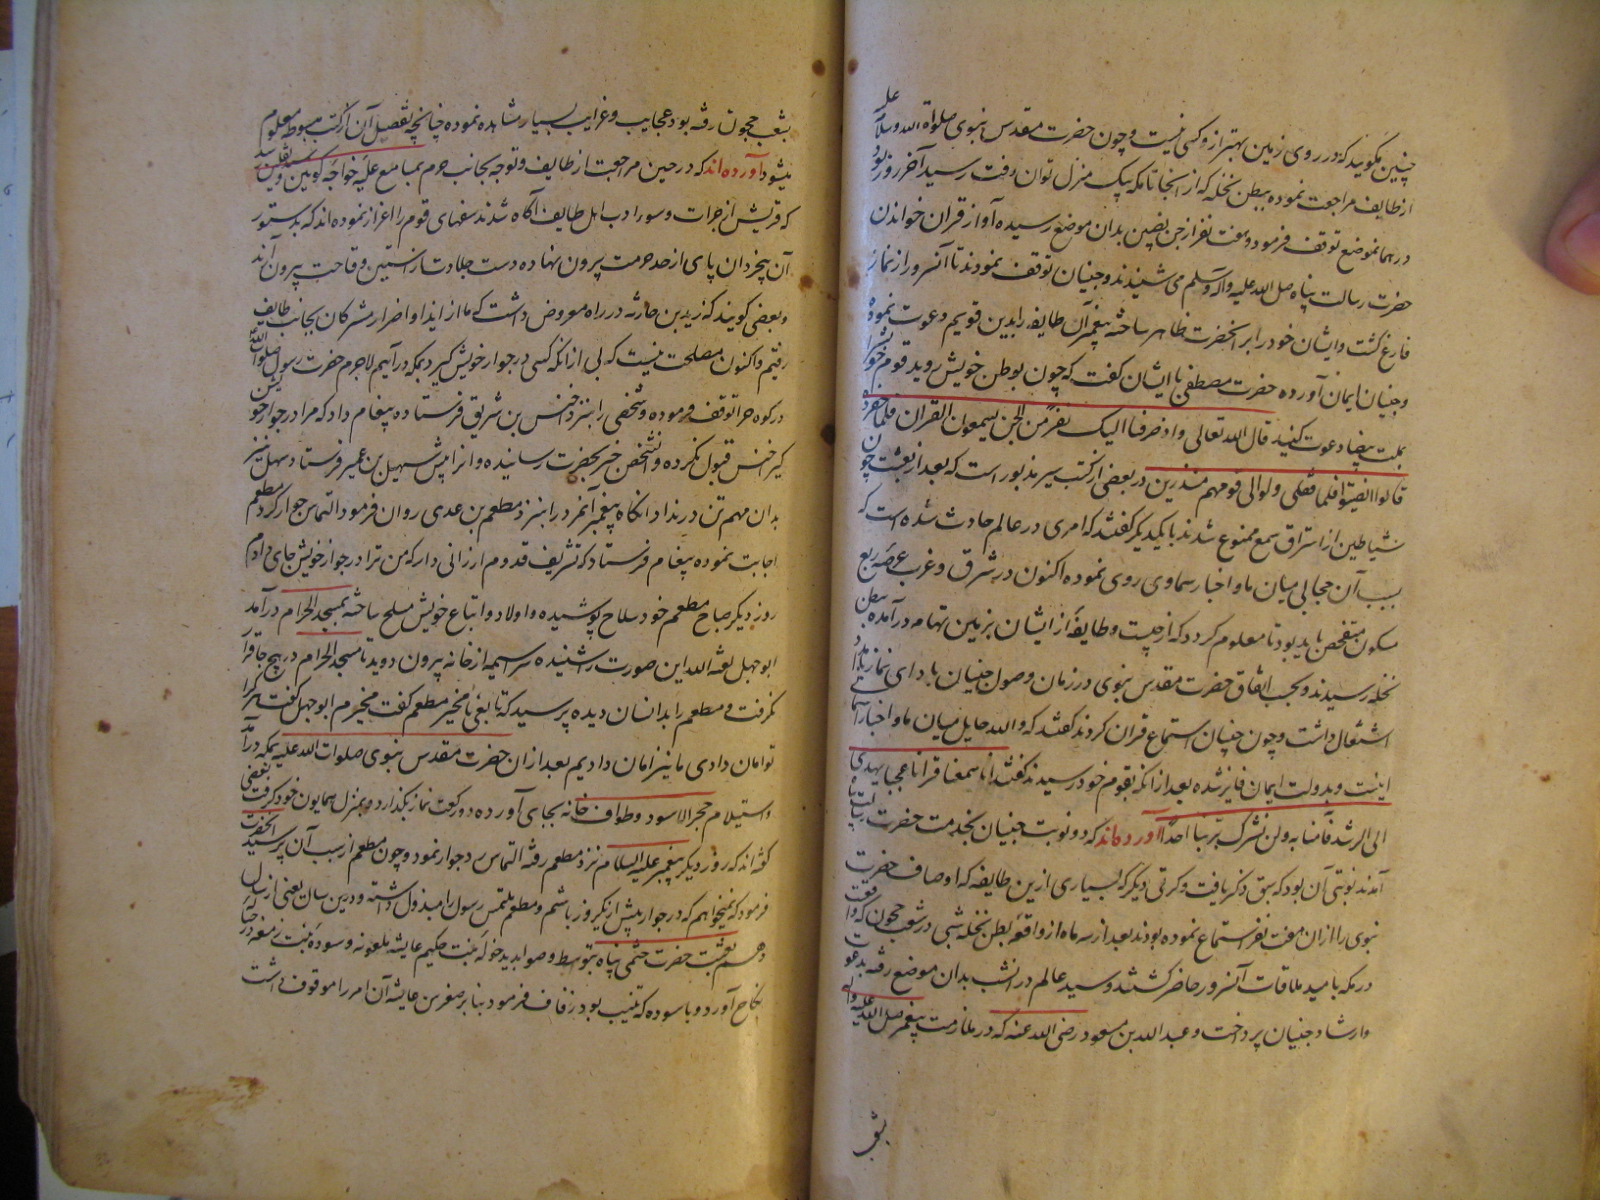 چنین میکویند که در روی زمین بهتر ازو کسی نیست و چون حضرت مقدس نبوی صلوات الله و سلامه علیه
از طایف مراجعت نموده ببطن نخله که از انجا تا مکه یک منزل توان رفت رسید آخر روز بود
در همانموضع توقف فرمود و هفت نفر از جن نصیبین بدان موضع رسیده آواز قران خواندن
حضرت رسالت پناه صلی الله علیه واله وسلم می شنیدند و جنیان توقف نمودند تا آنسرور از نماز
فارغ کشت و ایشان خود را بر انحضرت ظاهر ساخته پیغمبر آن طایفه را بدین قویم دعوت نموده
و جنیان ایمان آورده حضرت مصطفی با ایشان کفت که چون بوطن خویش روید قوم خود را
بملت بیضا دعوت کنید قال الله تعالی واذ صرفنا الیک نفرا من الجن یستمعون القران فلما حضروه
قالوا انصتوا فلما قضی ولوا الی قومهم منذرین در بعضی از کتب سیر مذبور است که بعد از بعثت چون
شیاطین از استراق سمع ممنوع شدند با یکدیکر کفتند که امری در عالم حادث شده است که
بسبب آن حجابی میان ما و اخبار سماوی روی نموده اکنون در شرق و غرب عرصه ربع
مسکون متفحص باید بود تا معلوم کردد که از چیست و طایفه از ایشان بزمین تهامه درآمده ببطن
نخله رسیدند و بحسب اتفاق حضرت مقدس نبوی در زمان وصول جنیان بادای نماز بامداد
اشتغال داشت و چون جنیان استماع قران کردند کفتند که والله حایل میان ما و اخبار آسمانی
اینست و بدولت ایمان فایز شده بعد از انکه بقوم خود رسیدند کفتند انا سمعنا قرانا عجبا یهدی
الی الرشد فآمنا به ولن نشرک بربنا احدا آورده‌اند که دو نوبت جنیان بخدمت حضرت رسالت پناه
آمدند نوبتی آن بود که سبق ذکر یافت و کرتی دیکر که بسیاری ازین طایفه که اوصاف حضرت
نبوی را ازان هفت نفر استماع نموده بودند بعد از سه ماه از واقعه بطن نخله شبی در شعب حجون که
در مکه بامید ملاقات آنسرور حاضر کشتند و سید عالم در انشب بدان موضع رفته بدعوت
وارشاد جنیان پرداخت و عبد الله بن مسعود رضی الله عنه که در ملازمت پیغمبر صلی الله علیه واله
بشعب
بشعب حجون رفته بود عجایب و غرایب بسیار مشاهده نموده چنانچه تفصیل آن از کتب مبسوطه معلوم
میشود آورده‌اند که در حین مراجعت از طایف و توجه بجانب حرم بمسامع علیه خواجه کونین و سید ثقلین رسید
که قریش از جرات و سوء ادب اهل طایف آکاه شدند سفهای قوم را اغراز نموده اند که بدستور
آن بیخردان پای از حد حرمت بیرون نهاده دست جلادت از استین وقاحت بیرون آرند
و بعضی کویند که زید بن حارثه در راه معروض داشت که ما از ایذا و اضرار مشرکان بجانب طایف
رفتیم و اکنون مصلحت نیست که بی ازانکه کسی در جوار خویش کیرد بمکه در آییم لاجرم حضرت رسول صلوات الله
در کوه حرا توقف فرموده و شخصی را بنزد اخنس بن شریق فرستاده پیغام داد که مرا در جوار خویش
کیر اخنس قبول نکرده و انشخص خبر بحضرت رسانیده و انرا پیش سهیل بن عمیر فرستاد سهل نیز
بدان مهم تن در نداد انکاه پیغمبر آنمرد را بنزد مطعم بن عدی روان فرمود التماس جوار کرد مطعم
اجابت نموده پیغام فرستاد که تشریف قدوم ارزانی دار که من ترا در جوار خویش جای دادم
روز دیکر صباح مطعم خود سلاح پوشیده و اولاد و اتباع خویش مسلح ساخته بمسجد الحرام درآمد
ابو جهل لعنه الله این صورت شنیده سراسیمه از خانه بیرون دوید تا مسجد الحرام در هیچ جا قرار
نکرفت و مطعم را بدانسان دیده پرسید که تابعی یا مخیر مطعم کفت مخیرم ابو جهل کفت هرکرا
تو امان دادی ما نیز امان دادیم بعد ازان حضرت مقدس نبوی صلوات الله علیه بمکه درآمد
و استیلام حجر الاسود و طواف خانه بجای آورده دو رکعت نماز بکذارد و بمنزل همایون خود رفت بعضی
کفته‌اند که روز دیکر پیغمبر علیه السلام نزد مطعم رفته التماس رد جوار نمود و چون مطعم از سبب آن پرسید انحضرت
فرمود که نمیخواهم که در جوار بیش از یکروز باشم و مطعم ملتمس رسول را مبذول داشته و درین سال یعنی از سال
دهم بعثت حضرت ختمی پناه بتوسط و صوابدید خوله بنت حکیم عایشه ملعونه و سوده بنت زمعه را در
نکاح آورد و با سوده که ثیب بود زفاف فرمود بنا بر صغر سن عایشه آن امر را موقوف داشت